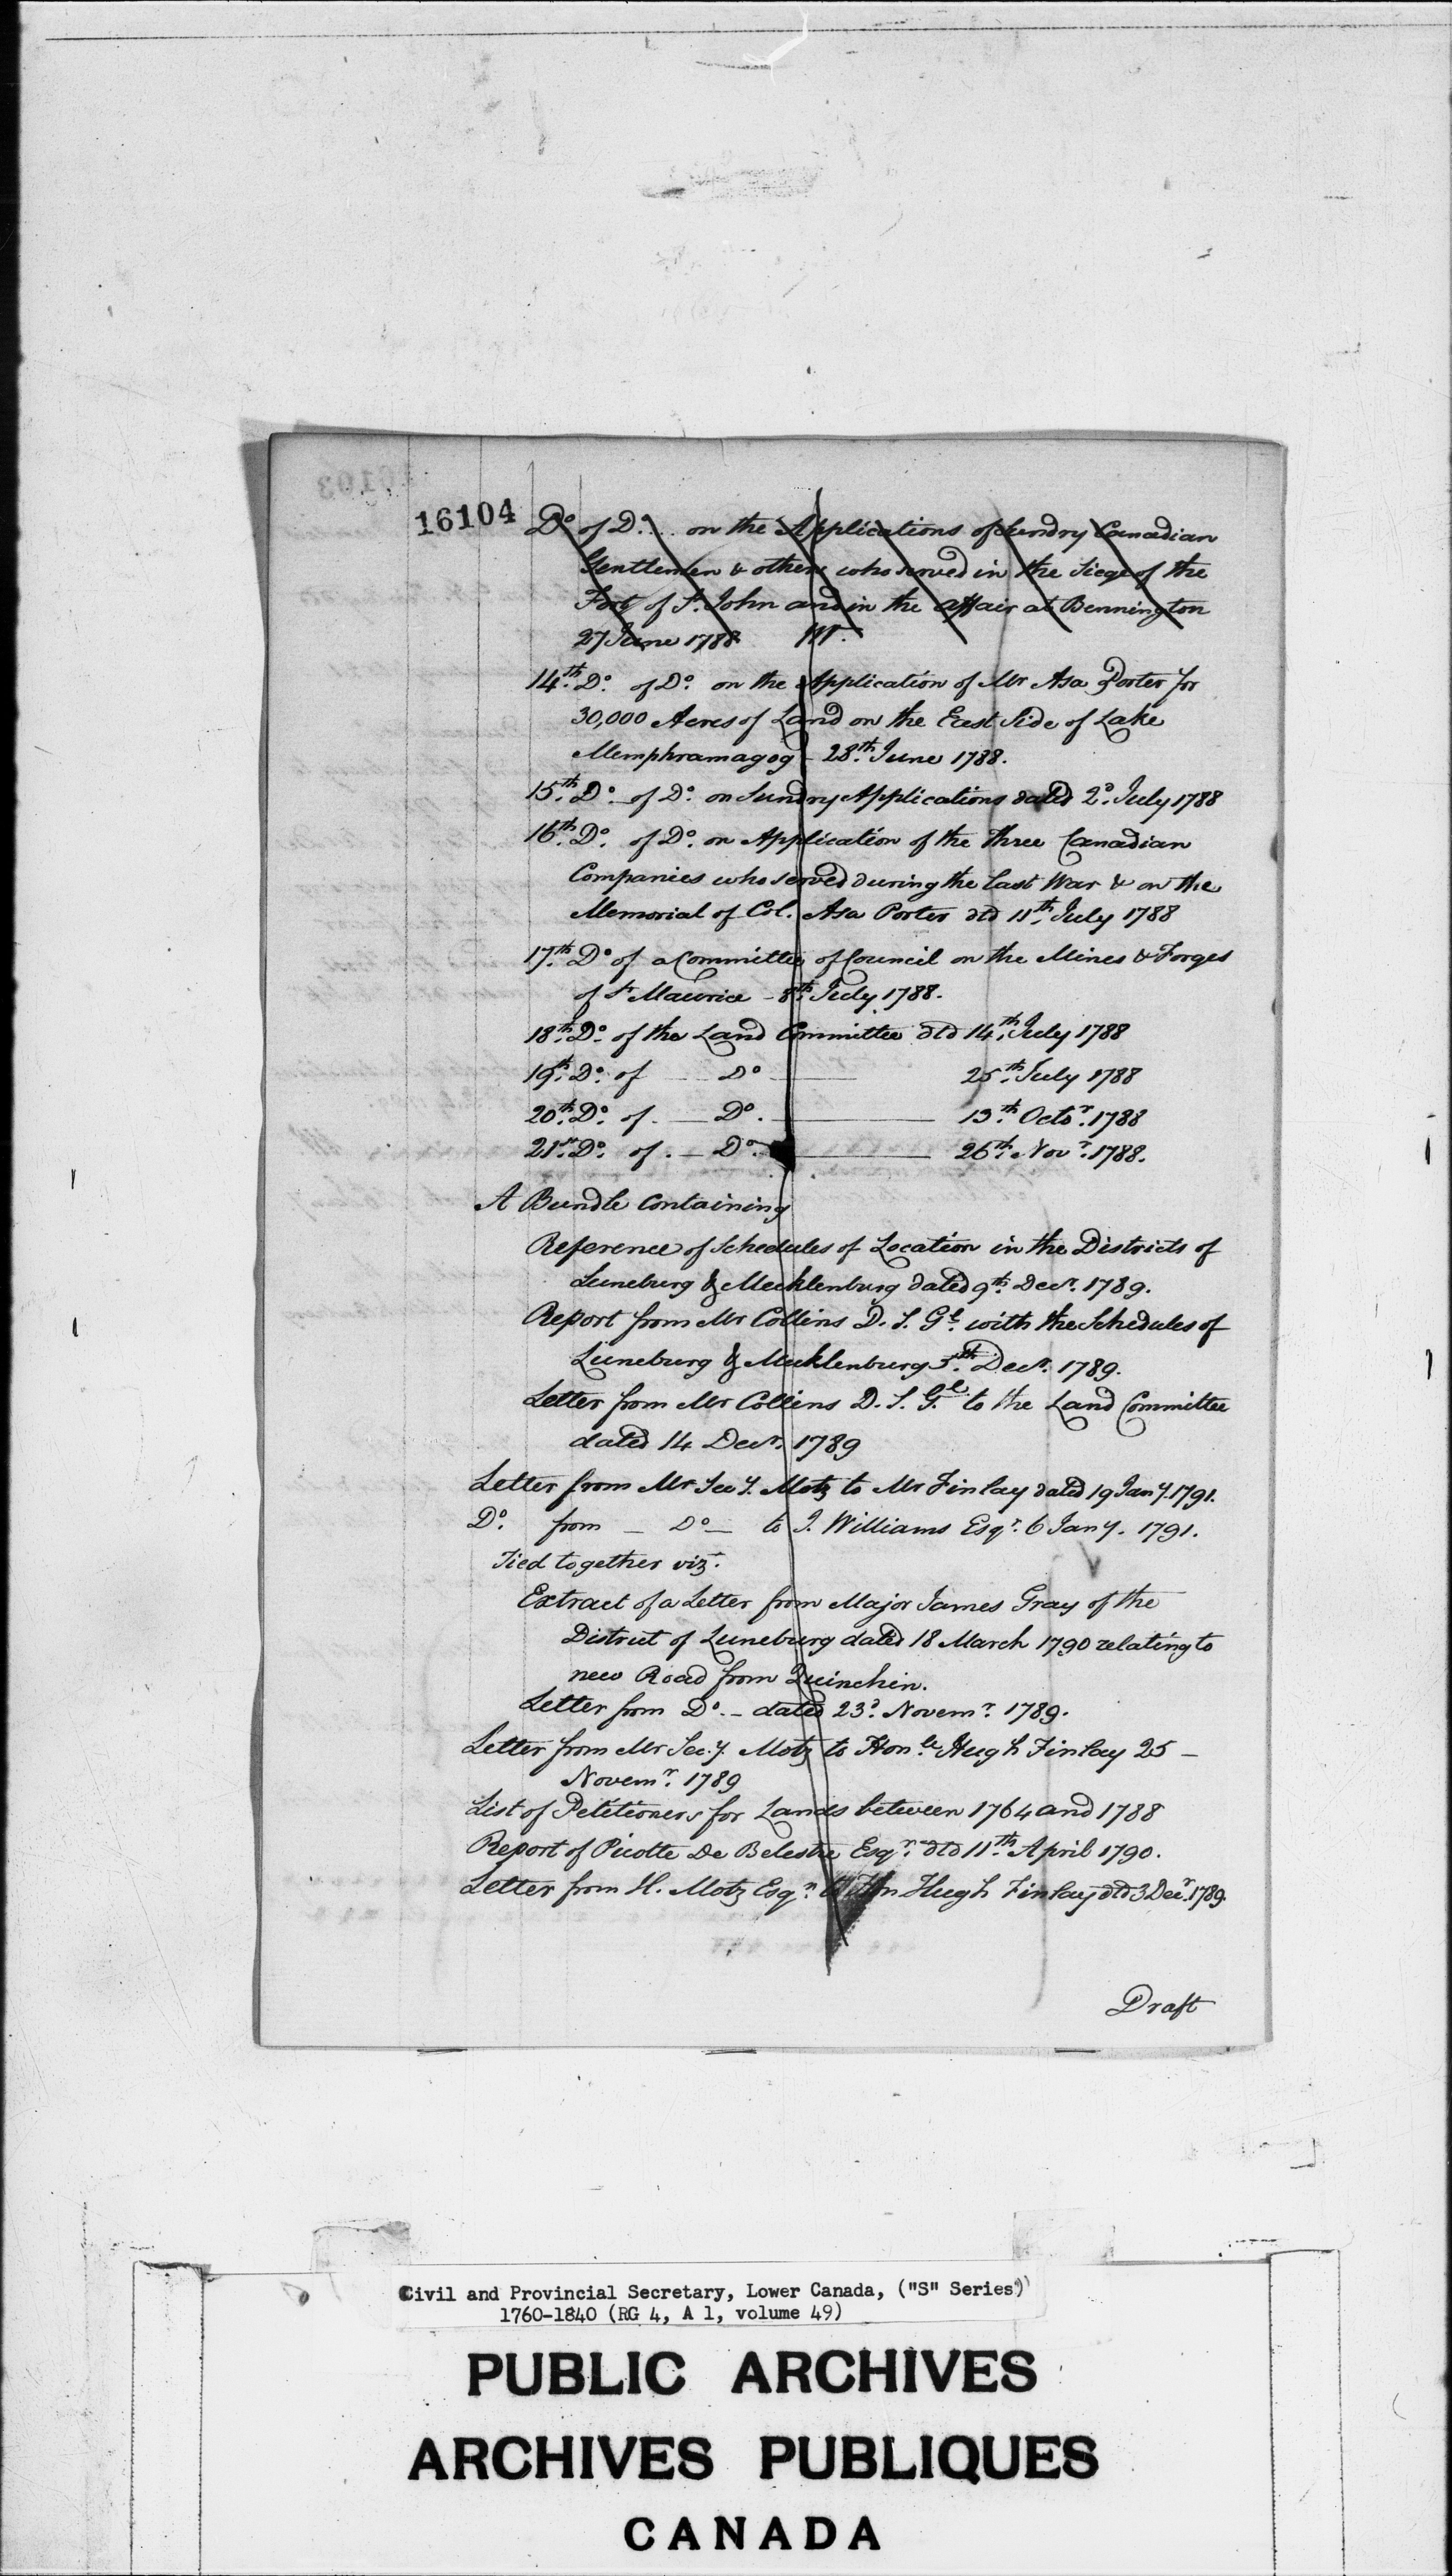 16104
Do of Do... on the Applications of Sundry Canadian
Gentlemen & others who served in the Siege of the
Fort of St. John and in the affair at Bennington
27 June 1788
14th. Do. of Do. on the Application of Mr Asa Porter for
30,000 Acres of Land on the East Side of Lake
Memphramagog - 28th. June 1788.
15th. Do. of Do. on Sundry Applications dated 2d. July 1788
16th. Do. of Do. on Application of the three Canadian
Companies who served during the last War & on the
Memorial of Col. Asa Porter dtd 11th. July 1788
17th. Do of a Committee of Council on the Mines & Forges
of St Maurice - 8th. July 1788.
18th. Do. of the Land Committee dtd 14th. July 1788
19th. Do. of — Do — 25th. July 1788
20th. Do. of. — Do. — 13th. Octr. 1788
21st. Do. of. — Do. — 26th. Novr. 1788.
A Bundle Containing
Reference of Schedules of Location in the Districts of
Luneburg & Mecklenburg dated 9th. Decr. 1789.
Report from Mr Collins D. S. Gl. with the Schedules of
Luneburg & Mecklenburg 5th Decr. 1789.
Letter from Mr Collins D. S. Gl. to the Land Committee
dated 14 Decr. 1789
Letter from Mr Secy. Motz to Mr Finlay dated 19 Jany. 1791.
Do. from — Do — to J. Williams Esqr. 6 Jany. 1791.
Tied together vizt.
Extract of a Letter from Major James Gray of the
District of Luneburg dated 18 March 1790 relating to
new Road from Quinchin.
Letter from Do. - dated 23d. Novemr. 1789.
Letter from Mr Secy. Motz to Honble Hugh Finlay 25 —
Novemr. 1789
List of Petitioners for Lands between 1764 and 1788
Report of Picotte De Belestre Esqr. dtd 11th. April 1790.
Letter from H. Motz Esqr. to Hon Hugh Finlay dtd 3 Decr. 1789.
Draft
Civil and Provincial Secretary, Lower Canada, ("S" Series)
1760-1840 (RG 4, A 1, volume 49)
PUBLIC ARCHIVES
ARCHIVES PUBLIQUES
CANADA